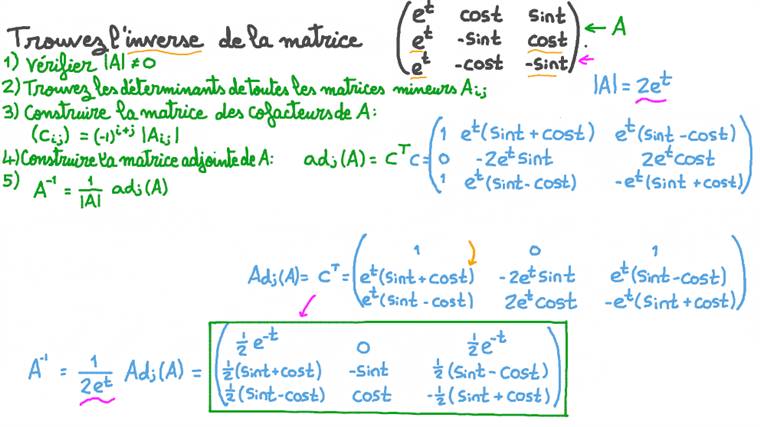 Trouvez l'inverse de la matrice
e^t cost sint
e^t -sint cost
e^t -cost -sint
← A
1) Vérifier |A| ≠ 0
2) Trouvez les déterminants de toutes les matrices mineurs A_ij
|A| = 2e^t
3) Construire la matrice des cofacteurs de A:
(C_ij) = (-1)^(i+j) |A_ij|
4) Construire la matrice adjointe de A: adj(A) = C^T
C =
1 e^t(sint + cost) e^t(sint - cost)
0 -2e^t sint 2e^t cost
1 e^t(sint - cost) -e^t(sint + cost)
5) A^-1 = 1/|A| adj(A)
Adj(A) = C^T =
1 0 1
e^t(sint + cost) -2e^t sint e^t(sint - cost)
e^t(sint - cost) 2e^t cost -e^t(sint + cost)
A^-1 = 1/2e^t Adj(A) =
1/2 e^-t 0 1/2 e^-t
1/2(sint + cost) -sint 1/2(sint - cost)
1/2(sint - cost) cost -1/2(sint + cost)